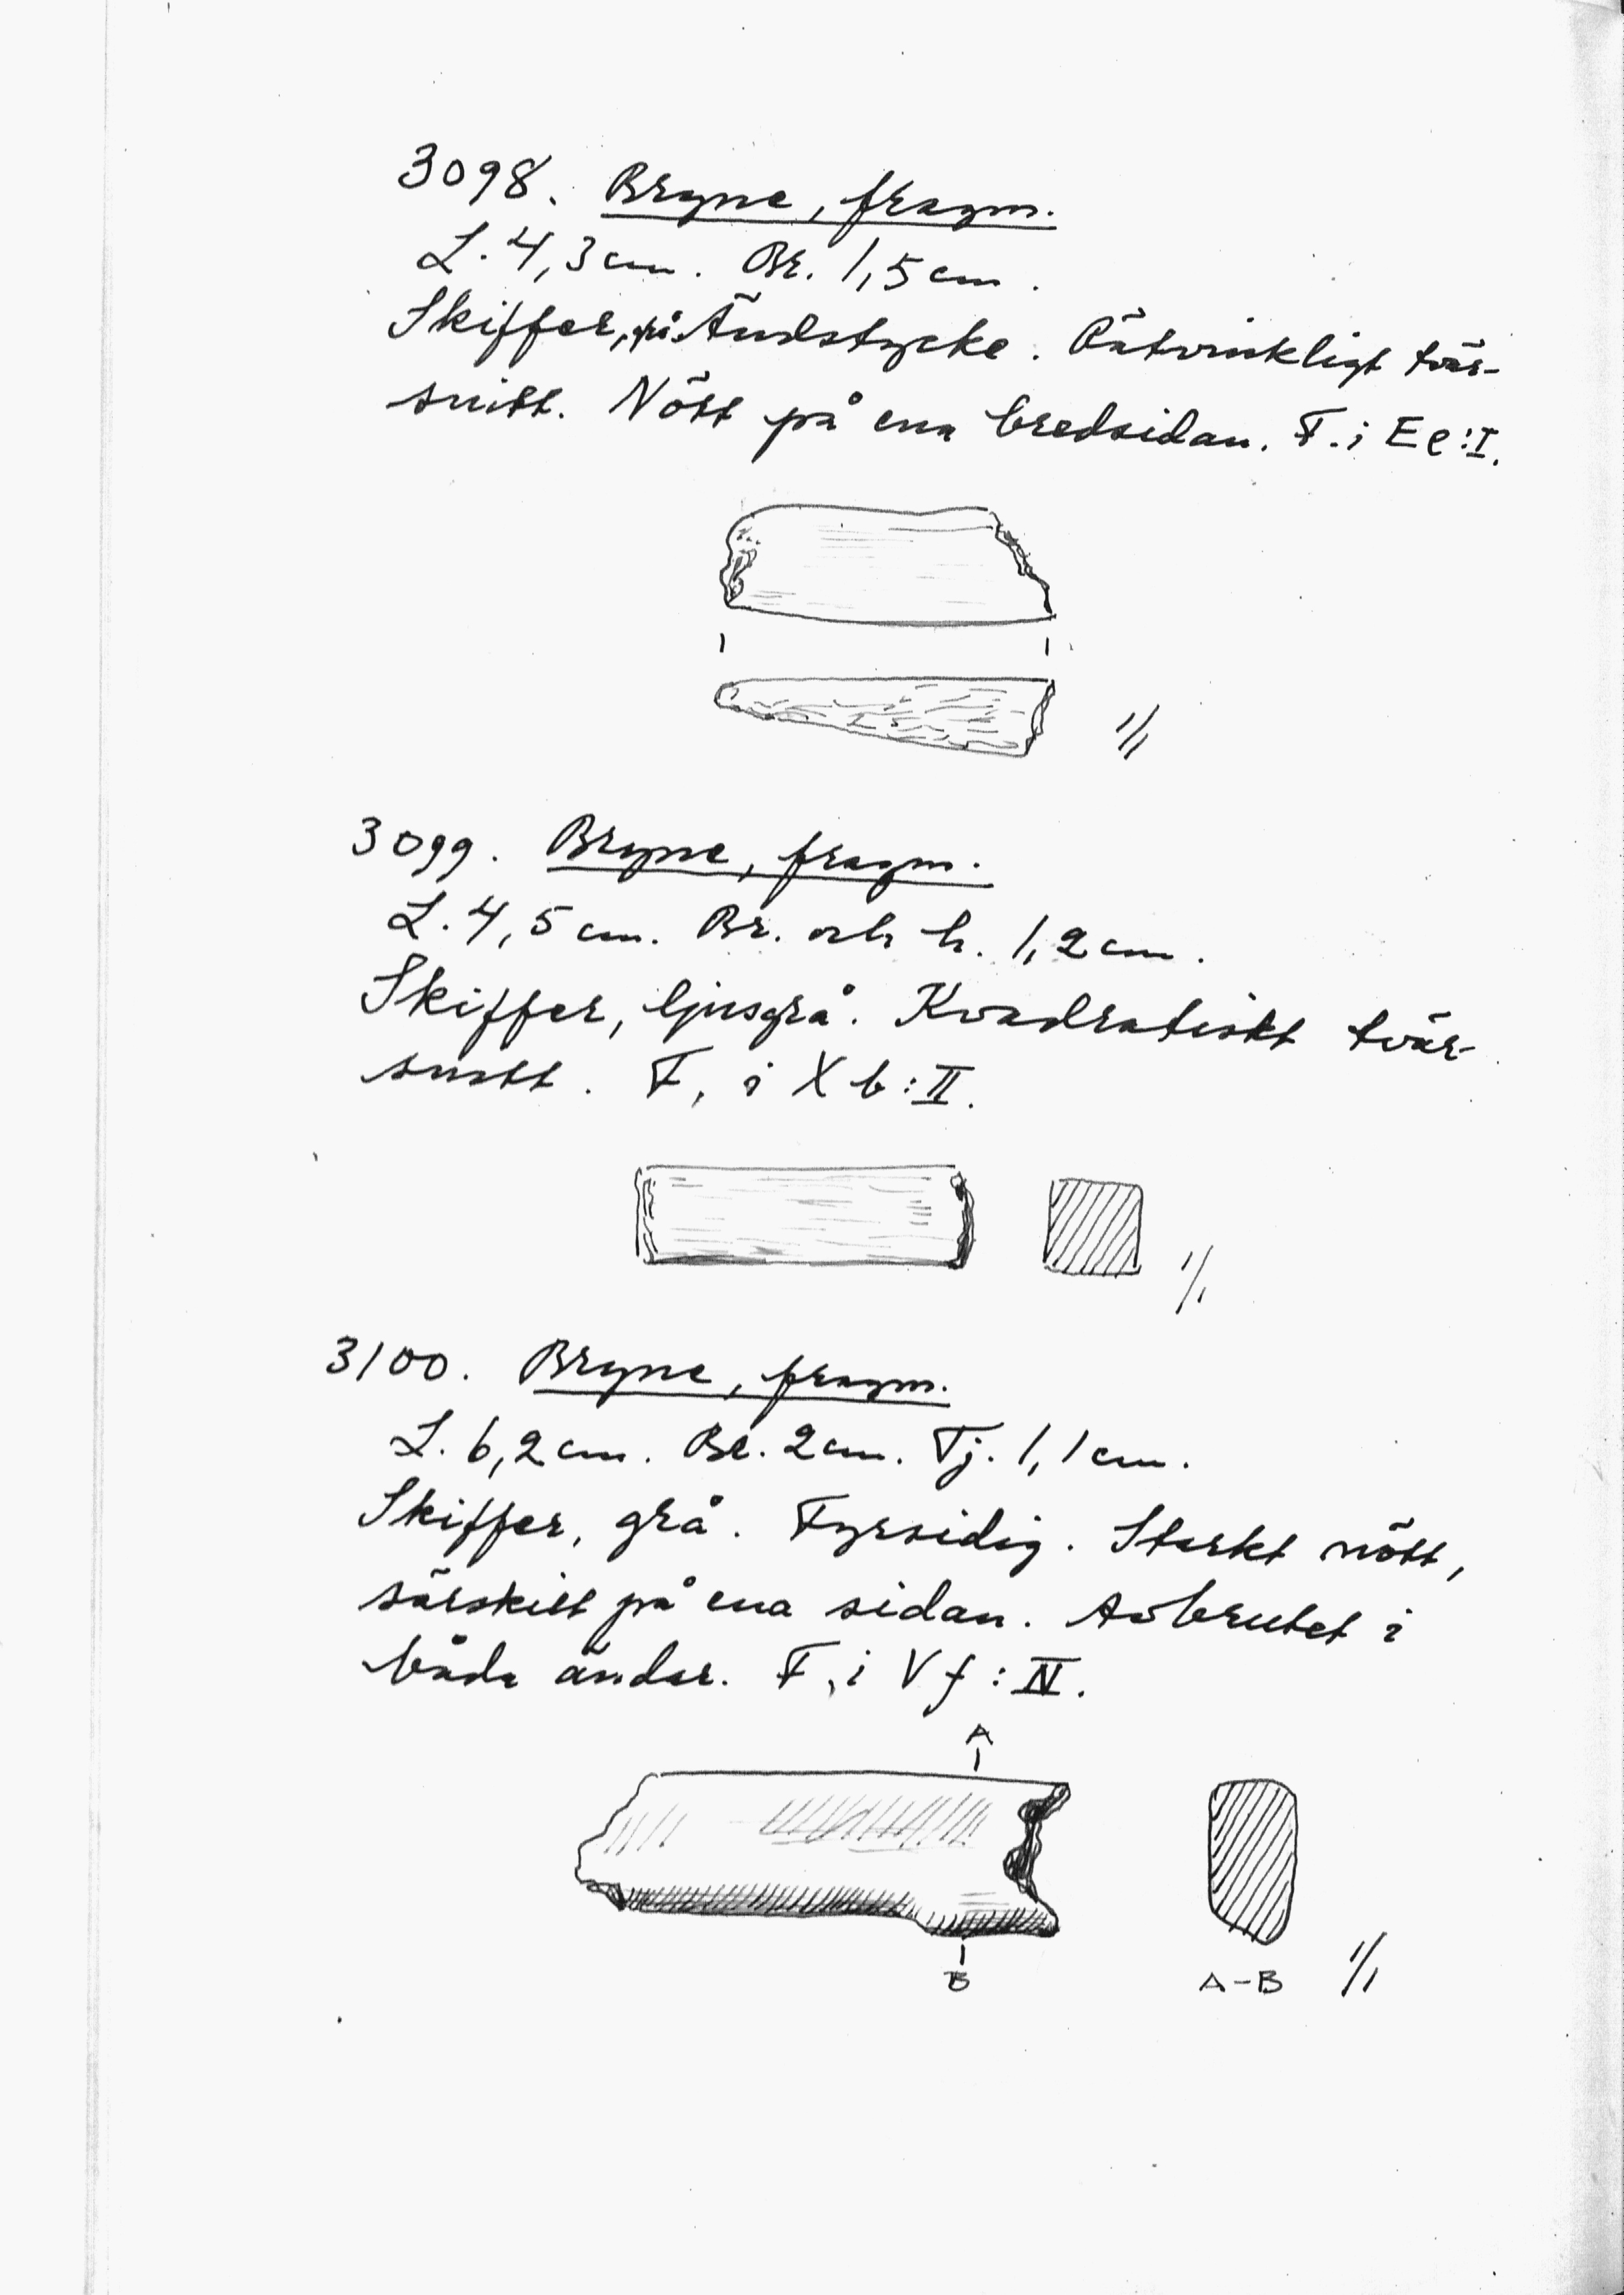 3098. Bryne, fragm.
L. 4,3 cm. Br. 1,5 cm.
Skiffer, grå. Ändstycke. Rätvinkligt tvär-
snitt. Nött på ena bredsidan. F. i Ee:I.
1/1
3099. Bryne, fragm.
L. 4,5 cm. Br. och h. 1,2 cm.
Skiffer, ljusgrå. Kvadratiskt tvär-
snitt. F. i Xb:II.
1/1
3100. Bryne, fragm.
L. 6,2 cm. Br. 2 cm. Tj. 1,1 cm.
Skiffer, grå. Fyrsidig. Starkt nött,
särskilt på ena sidan. Avbrutet i
båda ändar. F. i Vf:IV.
A
B
A-B 1/1